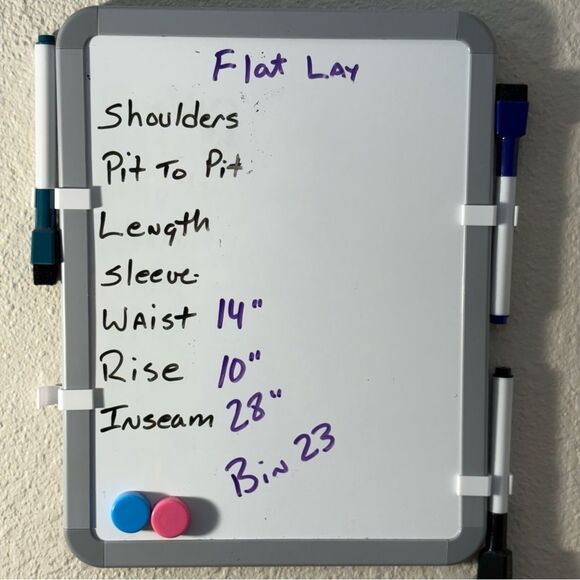 Flat Lay
Shoulders
Pit To Pit
Length
Sleeve
Waist 14"
Rise 10"
Inseam 28"
Bin 23